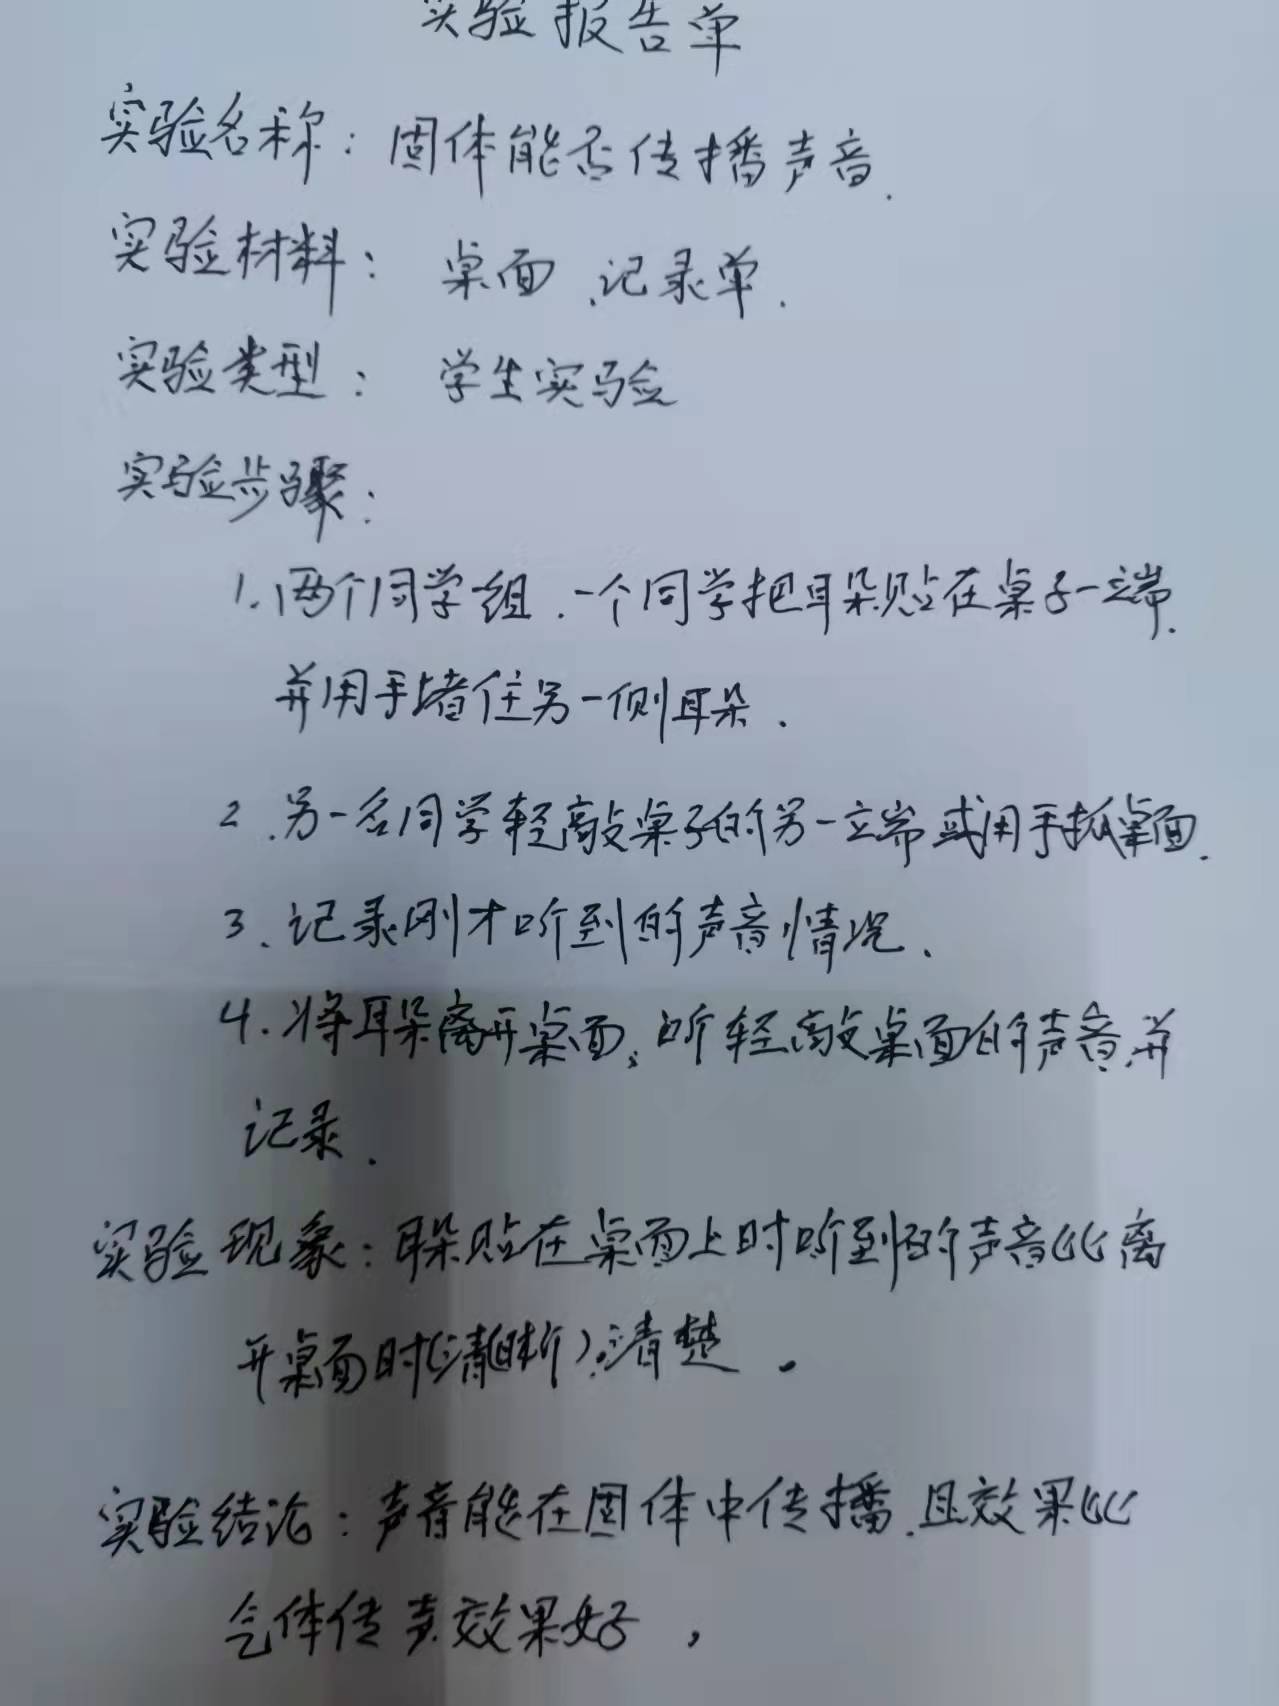 实验报告单
实验名称：固体能否传播声音.
实验材料： 桌面、记录单.
实验类型： 学生实验
实验步骤：
1.两个同学组.一个同学把耳朵贴在桌子一端.
并用手堵住另一侧耳朵.
2.另一名同学轻敲桌子的另一端或用手抓桌面.
3.记录刚才听到的声音情况.
4.将耳朵离开桌面、听轻敲桌面的声音.并
记录.
实验现象：耳朵贴在桌面上时听到的声音比离
开桌面时(清晰).清楚.
实验结论：声音能在固体中传播.且效果比
气体传声效果好,